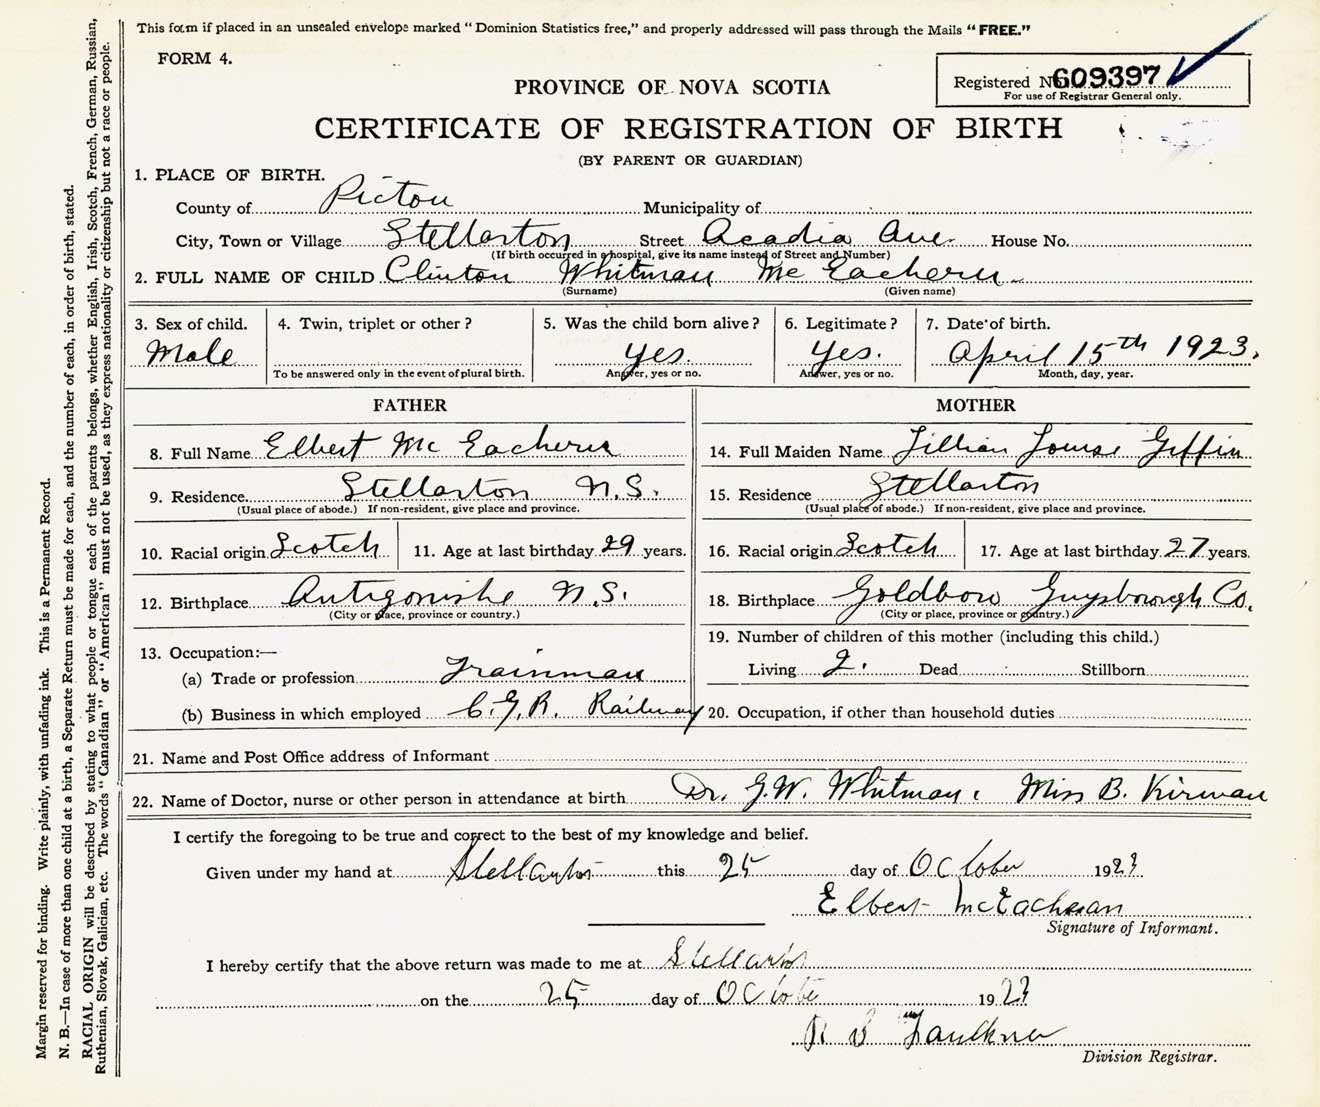 This form if placed in an unsealed envelope marked "Dominion Statistics free," and properly addressed will pass through the Mails "FREE."
FORM 4.
Registered No. 609397
For use of Registrar General only.
PROVINCE OF NOVA SCOTIA
CERTIFICATE OF REGISTRATION OF BIRTH
(BY PARENT OR GUARDIAN)
1. PLACE OF BIRTH.
County of Pictou Municipality of
City, Town or Village Stellarton Street Acadia Ave. House No.
(If birth occurred in a hospital, give its name instead of Street and Number)
2. FULL NAME OF CHILD Clinton Whitman Mc Eachern
(Surname) (Given name)
3. Sex of child. 4. Twin, triplet or other? 5. Was the child born alive? 6. Legitimate? 7. Date of birth.
Male Yes. Yes. April 15th 1923.
To be answered only in the event of plural birth. Answer, yes or no. Answer, yes or no. Month, day, year.
FATHER MOTHER
8. Full Name Elbert Mc Eachern 14. Full Maiden Name Lillian Louise Giffin
9. Residence Stellarton N.S. 15. Residence Stellarton
(Usual place of abode.) If non-resident, give place and province. (Usual place of abode.) If non-resident, give place and province.
10. Racial origin Scotch 11. Age at last birthday 29 years. 16. Racial origin Scotch 17. Age at last birthday 27 years.
12. Birthplace Antigonishe N.S. 18. Birthplace Goldboro Guysborough Co.
(City or place, province or country.) (City or place, province or country.)
13. Occupation:— 19. Number of children of this mother (including this child.)
(a) Trade or profession Trainman Living 2. Dead Stillborn
(b) Business in which employed C.G.R. Railway 20. Occupation, if other than household duties
21. Name and Post Office address of Informant
22. Name of Doctor, nurse or other person in attendance at birth Dr. G.W. Whitman, Miss B. Kirwan
I certify the foregoing to be true and correct to the best of my knowledge and belief.
Given under my hand at Stellarton this 25 day of October 1923
Elbert McEachern
Signature of Informant.
I hereby certify that the above return was made to me at Stellarton
on the 25 day of October 1923
Faulkner
Division Registrar.
Margin reserved for binding. Write plainly, with unfading ink. This is a Permanent Record.
N. B.—In case of more than one child at a birth, a Separate Return must be made for each, and the number of each, in order of birth, stated.
RACIAL ORIGIN will be described by stating to what people or tongue each of the parents belongs, whether English, Irish, Scotch, French, German, Russian,
Ruthenian, Slovak, Galician, etc. The words "Canadian" or "American" must not be used, as they express nationality or citizenship but not a race or people.